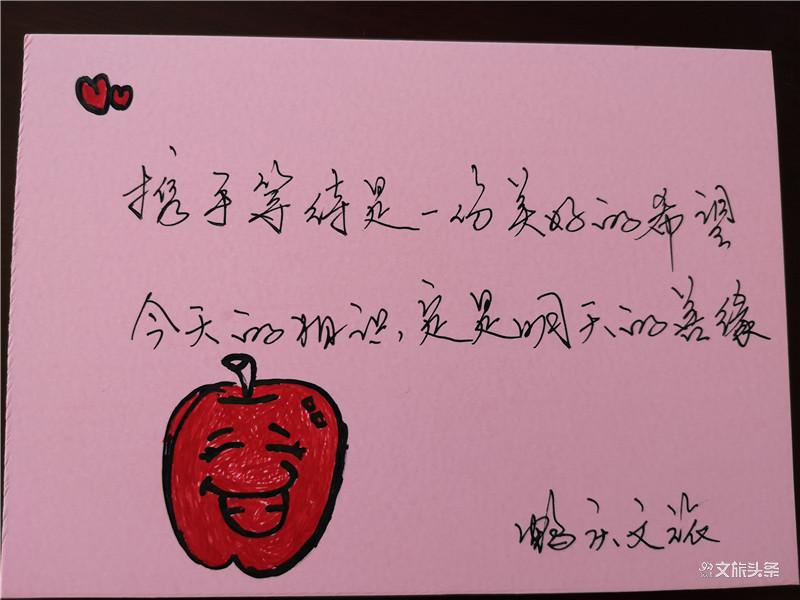 携手等待是一份美好的希望
今天的相识，定是明天的善缘
鹤庆文旅
文旅头条